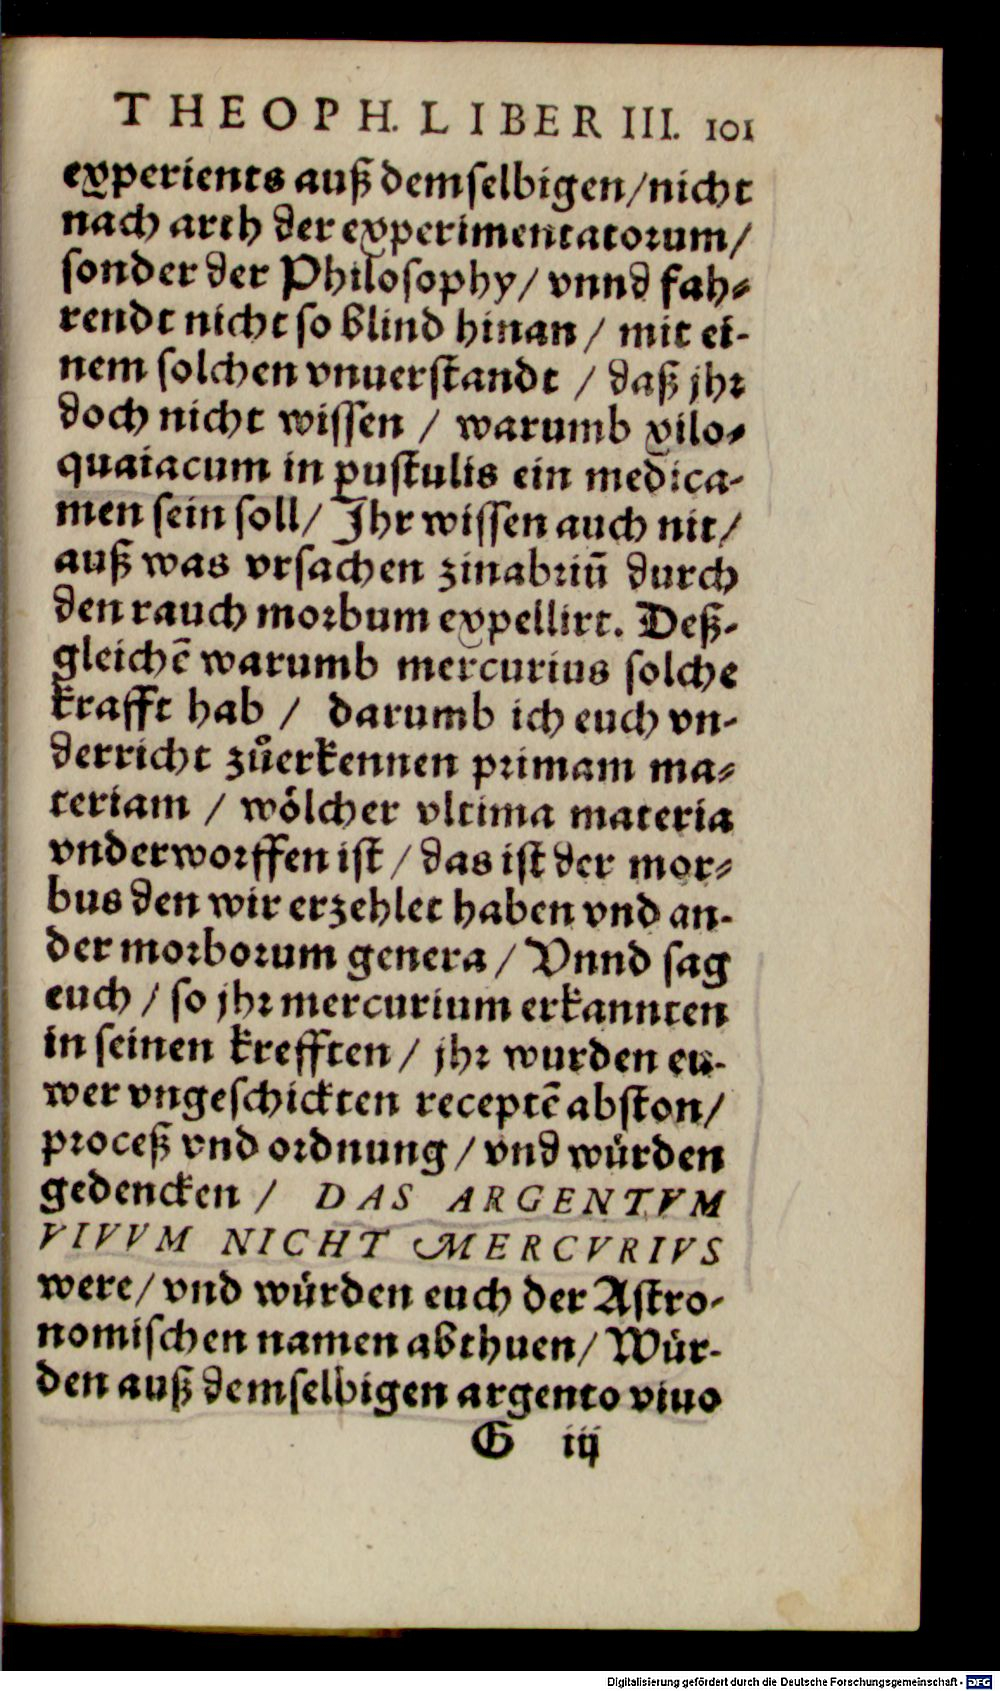 THEOPH. LIBER III. 101
experients auß demselbigen/nicht
nach arth der experimentatorum/
sonder der Philosophy/ vnnd fah-
rendt nicht so blind hinan / mit ei-
nem solchen vnuerstandt / daß jhr
doch nicht wissen / warumb xilo-
quaiacum in pustulis ein medica-
men sein soll/ Jhr wissen auch nit/
auß was vrsachen zinabriū durch
den rauch morbum expellirt. Deß-
gleichē warumb mercurius solche
krafft hab / darumb ich euch vn-
derricht zůerkennen primam ma-
teriam / wölcher vltima materia
vnderworffen ist / das ist der mor-
bus den wir erzehlet haben vnd an-
der morborum genera / Vnnd sag
euch / so jhr mercurium erkannten
in seinen krefften / jhr wurden eu-
wer vngeschickten receptē abston/
proceß vnd ordnung / vnd würden
gedencken / DAS ARGENTVM
VIVVM NICHT MERCVRIVS
were/ vnd würden euch der Astro-
nomischen namen abthuen/ Wür-
den auß demselbigen argento viuo
G iij
Digitalisierung gefördert durch die Deutsche Forschungsgemeinschaft - DFG